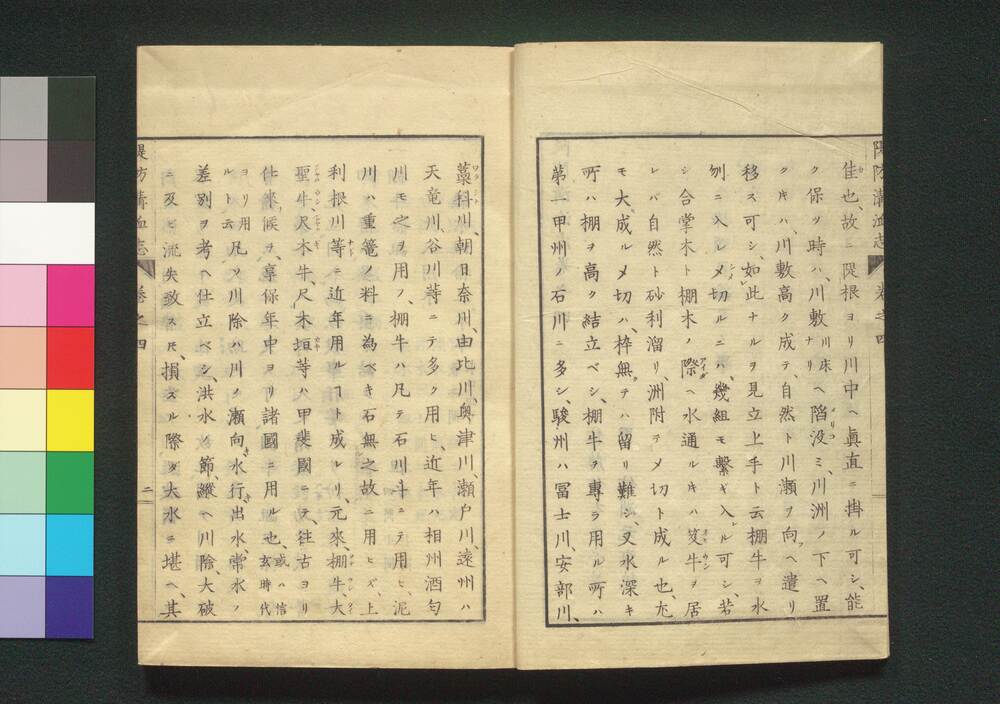 佳也、故ニ隄根ヨリ川中ヘ眞直ニ掛ル可シ、能
ク保ツ時ハ、川敷川床ナリヘ陷没メリコミ、川洲ノ下ヘ置
クキハ、川敷高ク成テ、自然ト川瀬ヲ向ヘ遣リ
移ス可シ、如此ナルヲ見立上手ト云棚牛ヲ水
刎ニ入レメ切ルニハ、幾組モ繋ギ入レル可シ、若
シ合掌木ト棚木ノ際アイダヘ水通ルキハ笈牛ヲ居
レバ自然ト砂利溜リ、洲附テメ切ト成ル也、尤
モ大成ルメ切ハ、枠無テハ留リ難シ、又水深キ
所ハ棚ヲ高ク結立ベシ、棚牛ヲ專ラ用ル所ハ
第一甲州ノ石川ニ多シ、駿州ハ冨士川、安部川、
隄防溝洫志 卷之四
藁科川、朝日奈川、由比川、奥津川、瀬戸川、遠州ハ
天竜川、谷川等ニテ多ク用ヒ、近年ハ相州酒匂
川モ之ヲ用ノ、棚牛ハ凡テ石川斗ニテ用ヒ、泥
川ハ重篭ノ料ニ為ベキ石無之故ニ用ヒズ、上
利根川等ニ近年用ルヿト成レリ、元來棚牛、大
聖牛、尺木牛、尺木垣等ハ甲斐國ニテ、往古ヨリ
仕來候ヲ、享保年中ヨリ諸國ニ用ル也、或ハ信玄時代
ヨリ用ルト云凡ソ川除ハ川ノ瀬向、水行、出水、常水ノ
差別ヲ考ヘ仕立ベシ、洪水ノ節、縱ヘ川除、大破
ニ及ビ流失致スㇳモ、損スル際ダ大水ニ堪ヘ、其
隄防溝洫志 卷之四 二